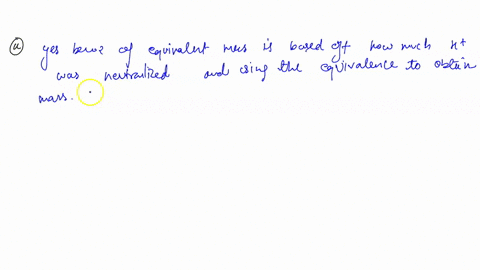 (a) yes because of equivalent mass is based off how much H+
was neutralized and using the equivalence to obtain
mass.